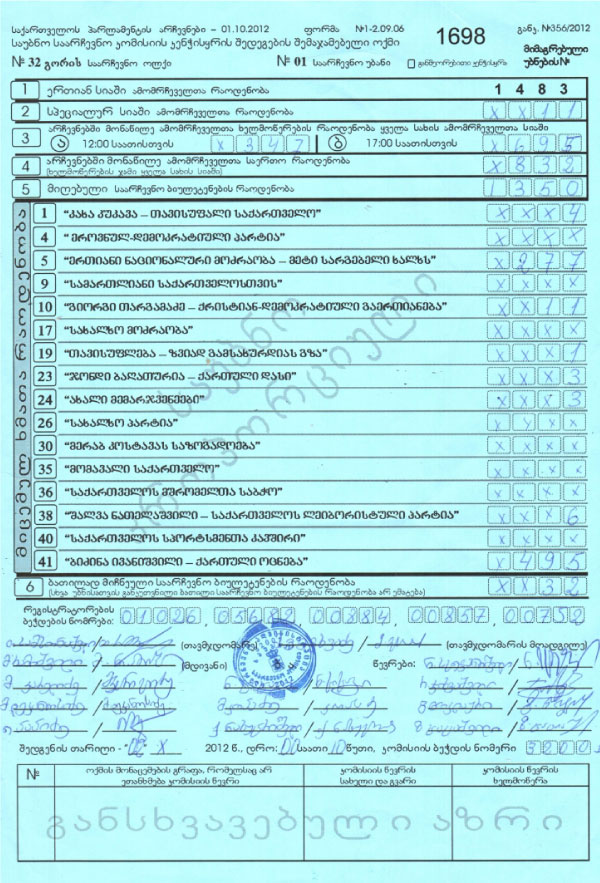 საქართველოს პარლამენტის არჩევნები – 01.10.2012 ფორმა №1-2.09.06 განკ. №356/2012
საუბნო საარჩევნო კომისიის კენჭისყრის შედეგების შემაჯამებელი ოქმი 1698 მიმაგრებული
№ 32 გორის საარჩევნო ოლქი № 01 საარჩევნო უბანი განმეორებითი კენჭისყრა უბნების №
1 ერთიან სიაში ამომრჩეველთა რაოდენობა 1 4 8 3
2 სპეციალურ სიაში ამომრჩეველთა რაოდენობა X X 1 1
3 არჩევნებში მონაწილე ამომრჩეველთა ხელმოწერების რაოდენობა ყველა სახის ამომრჩეველთა სიაში
ა 12:00 საათისთვის X 3 4 7 ბ 17:00 საათისთვის X 6 9 5
4 არჩევნებში მონაწილე ამომრჩეველთა საერთო რაოდენობა X 8 3 2
(ხელმოწერების ჯამი ყველა სახის სიაში)
5 მიღებული საარჩევნო ბიულეტენების რაოდენობა 1 3 5 0
მიცემულ ხმათა რაოდენობა
1 "კახა კუკავა – თავისუფალი საქართველო" X X X 4
4 "ეროვნულ-დემოკრატიული პარტია" X X X X
5 "ერთიანი ნაციონალური მოძრაობა – მეტი სარგებელი ხალხს" X 2 7 7
9 "სამართლიანი საქართველოსთვის" X X X X
10 "გიორგი თარგამაძე – ქრისტიან-დემოკრატიული გაერთიანება" X X 1 1
17 "სახალხო მოძრაობა" X X X X
19 "თავისუფლება – ზვიად გამსახურდიას გზა" X X X 1
23 "ჯონდი ბაღათურია – ქართული დასი" X X X 3
24 "ახალი მემარჯვენეები" X X X 3
26 "სახალხო პარტია" X X X X
30 "მერაბ კოსტავას საზოგადოება" X X X X
35 "მომავალი საქართველო" X X X X
36 "საქართველოს მშრომელთა საბჭო" X X X X
38 "შალვა ნათელაშვილი – საქართველოს ლეიბორისტული პარტია" X X X 6
40 "საქართველოს სპორტსმენთა კავშირი" X X X X
41 "ბიძინა ივანიშვილი – ქართული ოცნება" X 4 9 5
საუბნო
პროპორციული
6 ბათილად მიჩნეული საარჩევნო ბიულეტენების რაოდენობა X X 3 2
(სხვა უბნისათვის განკუთვნილი ბათილი საარჩევნო ბიულეტენების რაოდენობა არ ემატება)
რეგისტრატორების
ბეჭდების ნომრები: 01026, 05682, 00884, 00857, 00752
(თავმჯდომარე) (თავმჯდომარის მოადგილე)
(მდივანი) წევრები:
შედგენის თარიღი - 02. X 2012 წ., დრო: საათი 10 წუთი, კომისიის ბეჭდის ნომერი
№ ოქმის მონაცემების გრაფა, რომელსაც არ კომისიის წევრის კომისიის წევრის
ეთანხმება კომისიის წევრი სახელი და გვარი ხელმოწერა
განსხვავებული აზრი